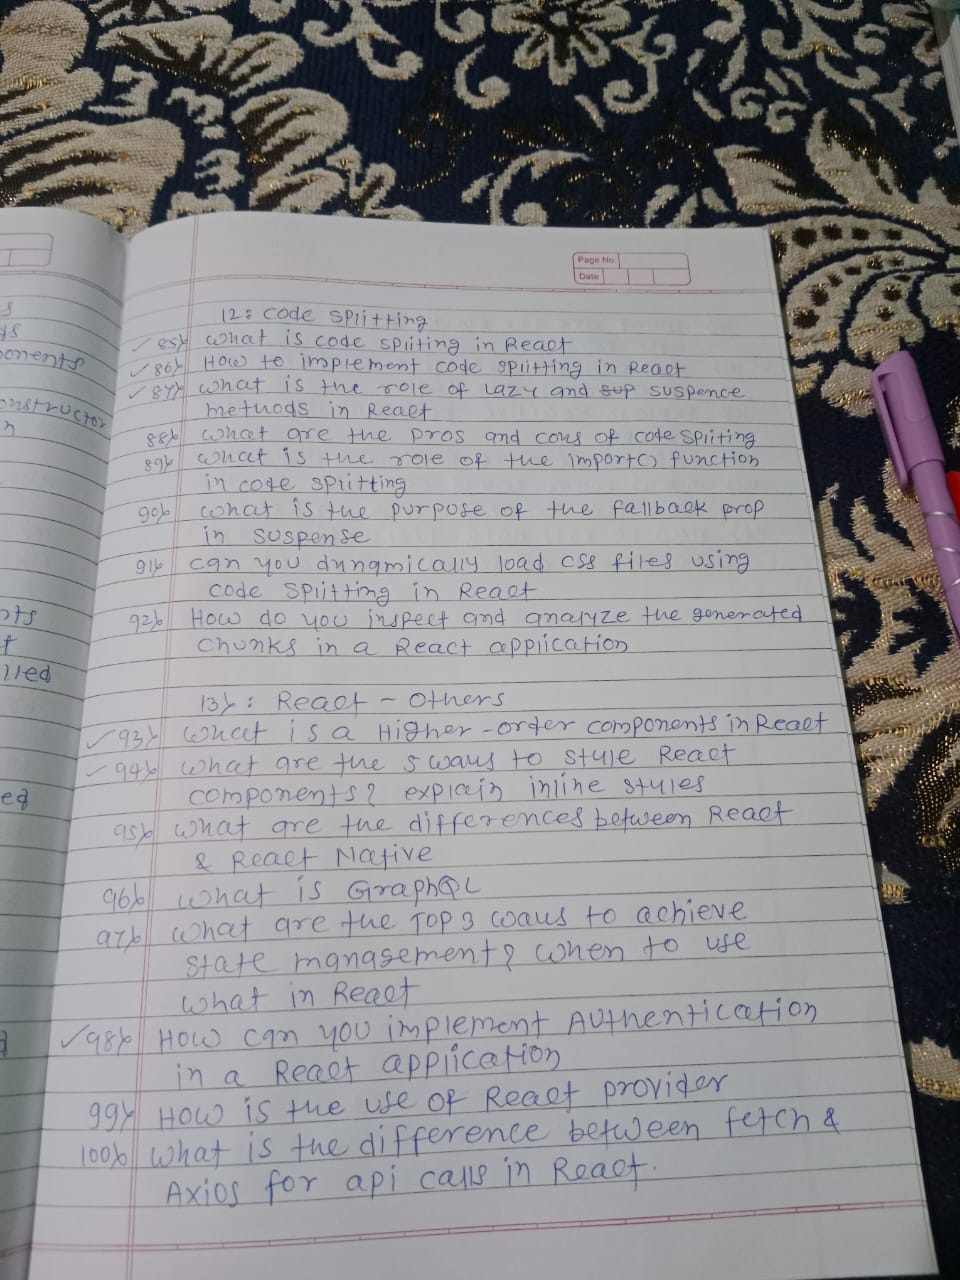 Page No.
Date
12: code splitting
85) what is code spliting in React
86) How to implement code splitting in React
87) what is the role of Lazy and sup suspence
methods in React
88) what are the pros and cons of code spliting
89) what is the role of the import() function
in code splitting
90) what is the purpose of the fallback prop
in suspense
91) can you dynamically load css files using
code splitting in React
92) How do you inspect and analyze the generated
chunks in a React application
13) : React - Others
93) what is a Higher-order components in React
94) what are the 5 ways to style React
components? explain inline styles
95) what are the differences between React
& React Native
96) what is GraphQL
97) what are the Top 3 ways to achieve
state management? when to use
what in React
98) How can you implement Authentication
in a React application
99) How is the use of React provider
100) what is the difference between fetch &
Axios for api calls in React.